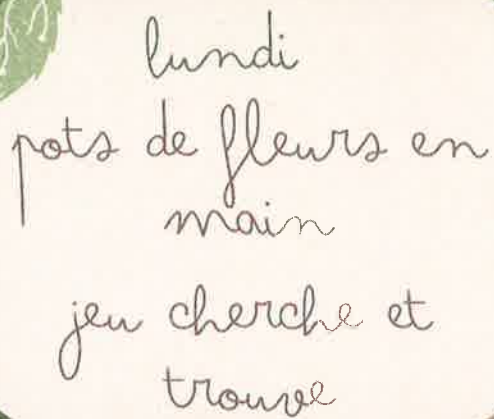 lundi
pots de fleurs en
main
jeu cherche et
trouve